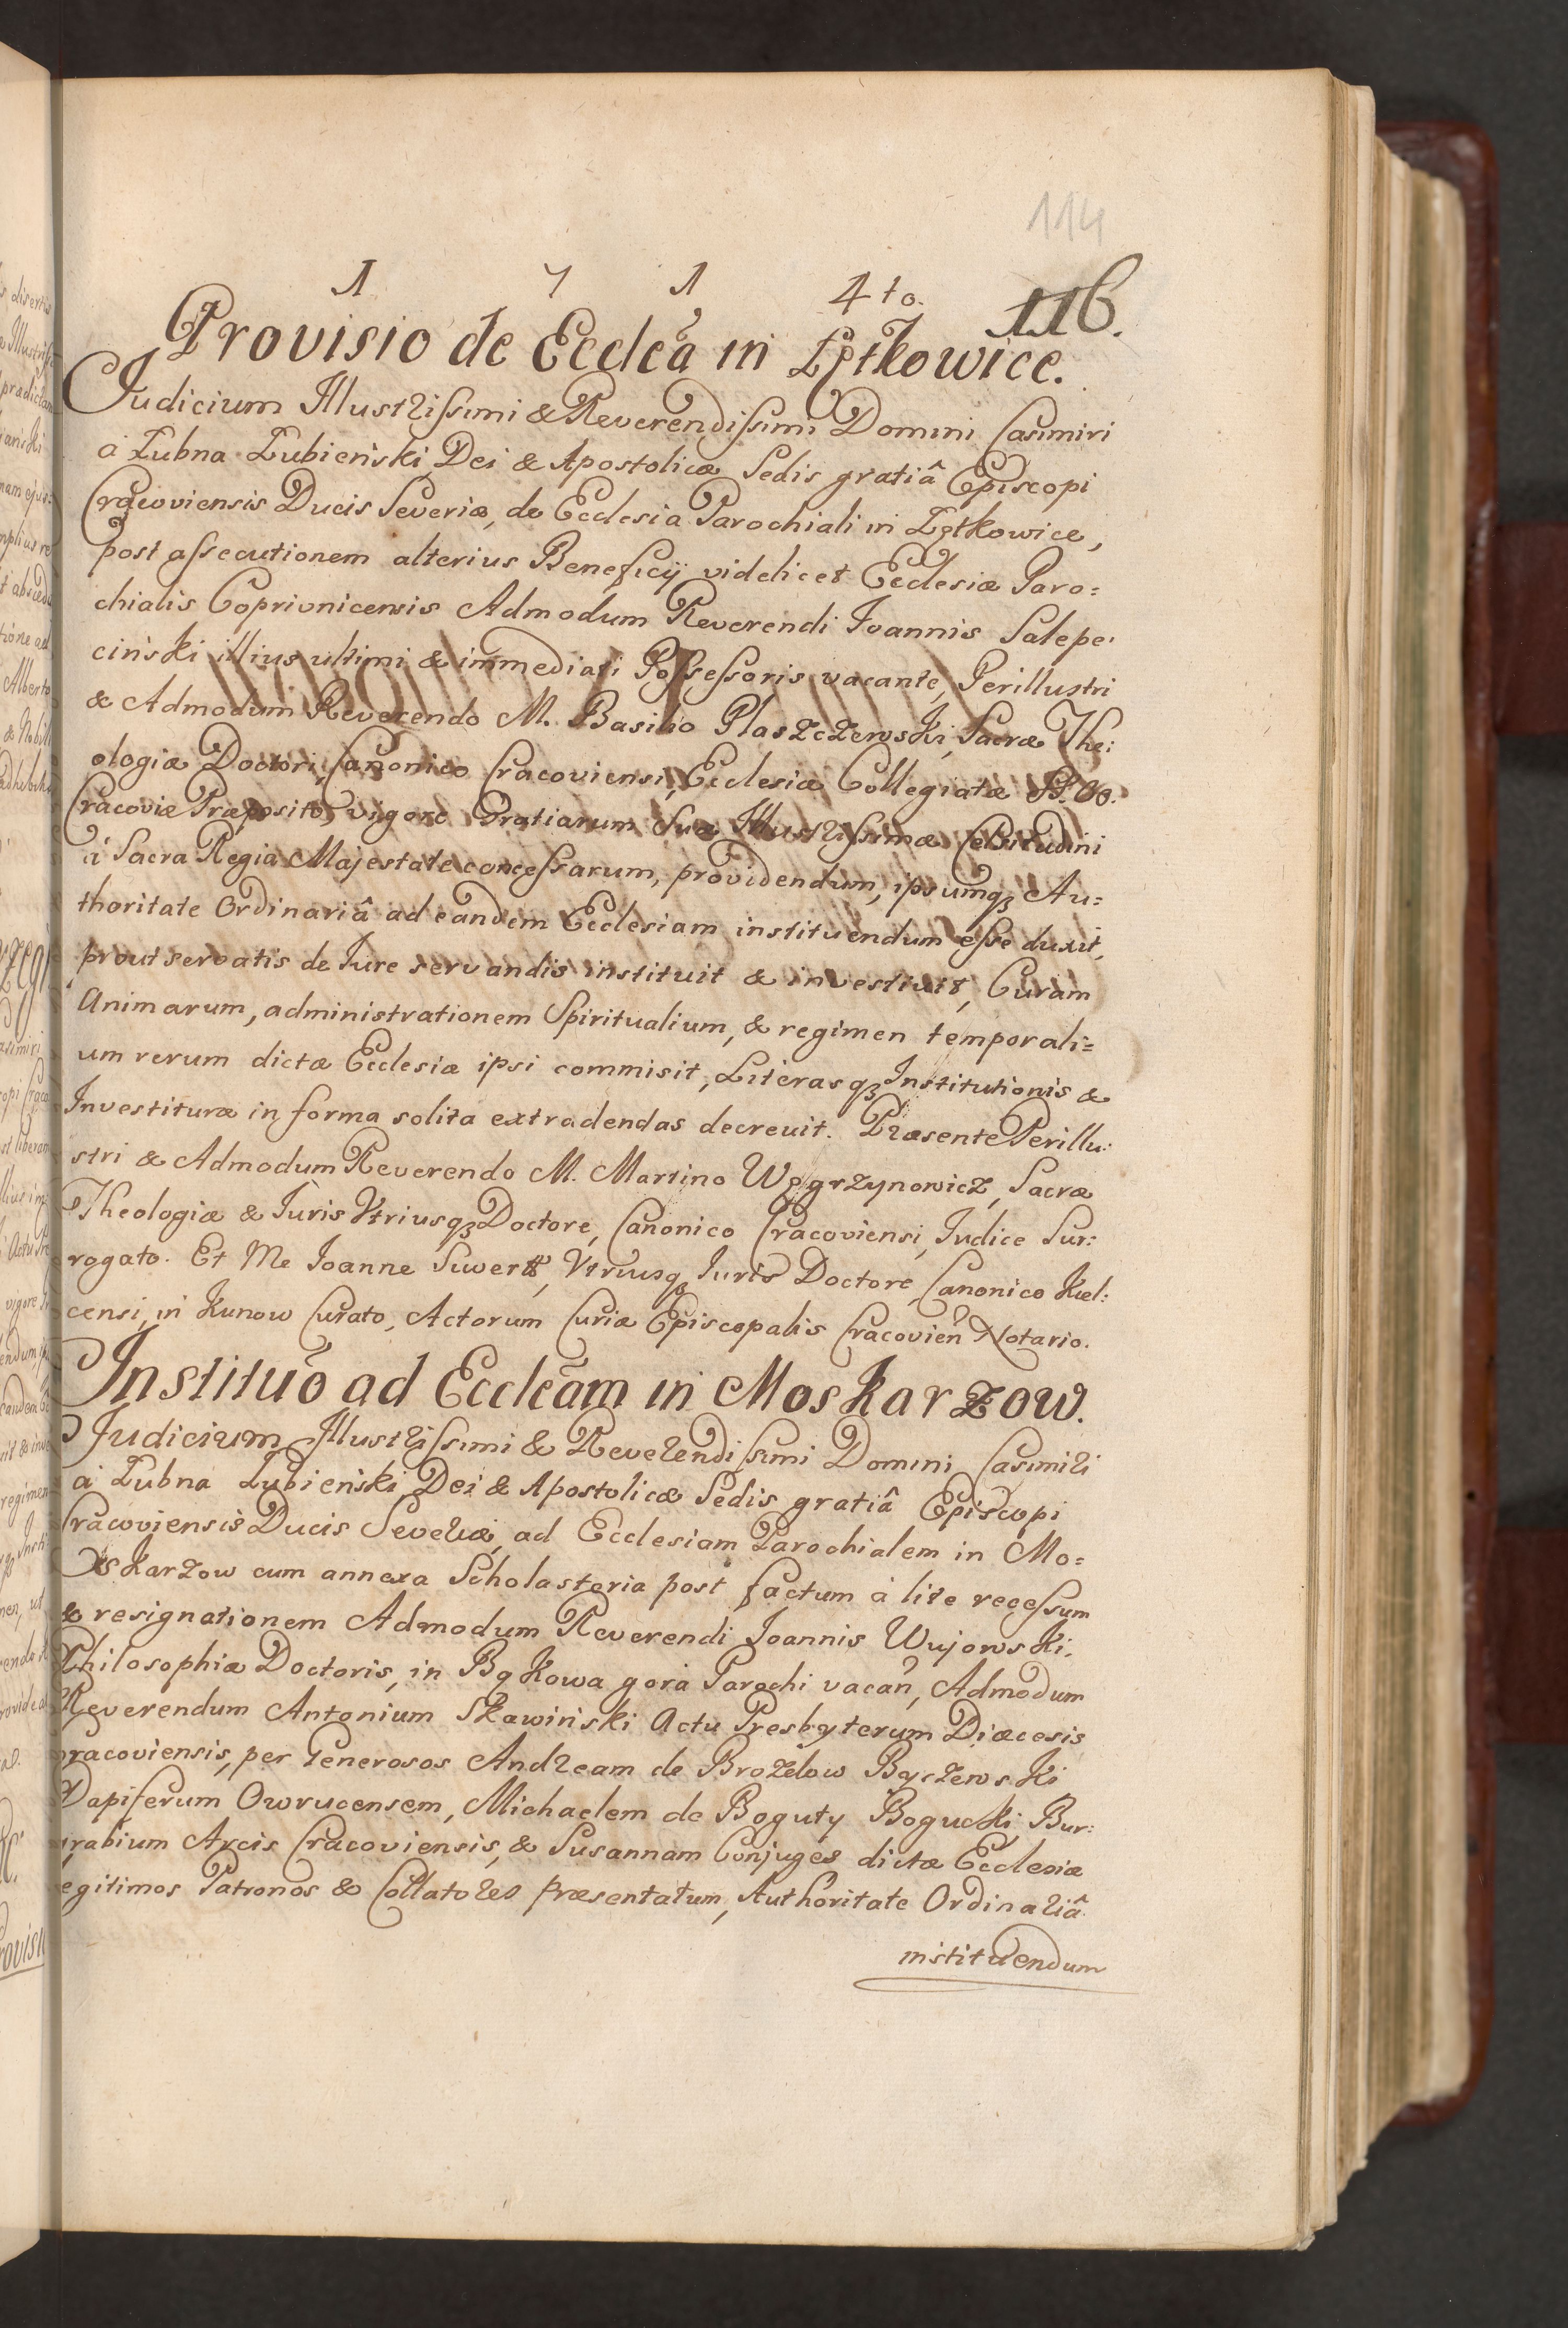 114
1 7 1 4to. 116.
Provisio de Eccleã in Łętkowice.
Judicium Illustrissimi & Reverendissimi Domini Casimiri
à Łubna Łubieński Dei & Apostolicæ Sedis gratiâ Episcopi
Cracoviensis Ducis Severiæ, de Ecclesia Parochiali in Łętkowice,
post assecutionem alterius Beneficij videlicet Ecclesiæ Paro=
chialis Coprivnicensis Admodum Reverendi Joannis Salepe:
ciński illius ultimi & immediati Possessoris vacante, Perillustri
& Admodum Reverendo M. Basilio Płaszczewski, Sacræ The:
ologiæ Doctori, Canonico Cracoviensi, Ecclesiæ Collegiatæ SS. OO.
Cracoviæ Præposito, vigore Gratiarum Suæ Illustrissimæ Celsitudini
à Sacra Regia Majestate concessarum, providendum, ipsumqꝫ Au=
thoritate Ordinariâ ad eandem Ecclesiam instituendum esse duxit,
prout servatis de Jure servandis instituit & investivit, Curam
Animarum, administrationem Spiritualium, & regimen temporali=
um rerum dictæ Ecclesiæ ipsi commisit, Literasqꝫ Institutionis &
Investituræ in forma solita extradendas decrevit. Præsente Perillu:
stri & Admodum Reverendo M. Martino Węgrzynowicz, Sacræ
Theologiæ & Juris Vtriusqꝫ Doctore, Canonico Cracoviensi, Judice Sur:
rogato. Et Me Joanne Suwertt, Vtriusqꝫ Juris Doctore, Canonico Kiel:
censi, in Kunow Curato, Actorum Curiæ Episcopalis Cracovień Notario.
Instituõ ad Eccleãm in Moskarzow.
Judicium Illustrissimi & Reverendissimi Domini Casimiri
à Łubna Łubieński Dei & Apostolicæ Sedis gratiâ Episcopi
Cracoviensis Ducis Severiæ, ad Ecclesiam Parochialem in Mo=
skarzow cum annexa Scholasteria post factum à lite recessum
& resignationem Admodum Reverendi Joannis Wujowski.
Philosophiæ Doctoris, in Bąkowa gora Parochi vacań, Admodum
Reverendum Antonium Skawiński Actu Presbyterum Diæcesis
Cracoviensis, per Generosos Andream de Brozdow Byczewski
Dapiferum Owrucensem, Michaelem de Boguty Bogucki Bur:
grabium Arcis Cracoviensis, & Susannam Conjuges dictæ Ecclesiæ
legitimos Patronos & Collatores præsentatum, Authoritate Ordinariâ
instituendum